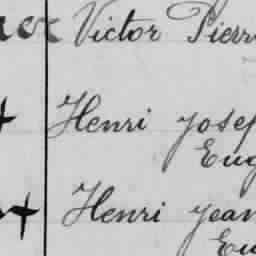 Victor Pierr
Henri Josep
Eug
Henri Jean
Eu